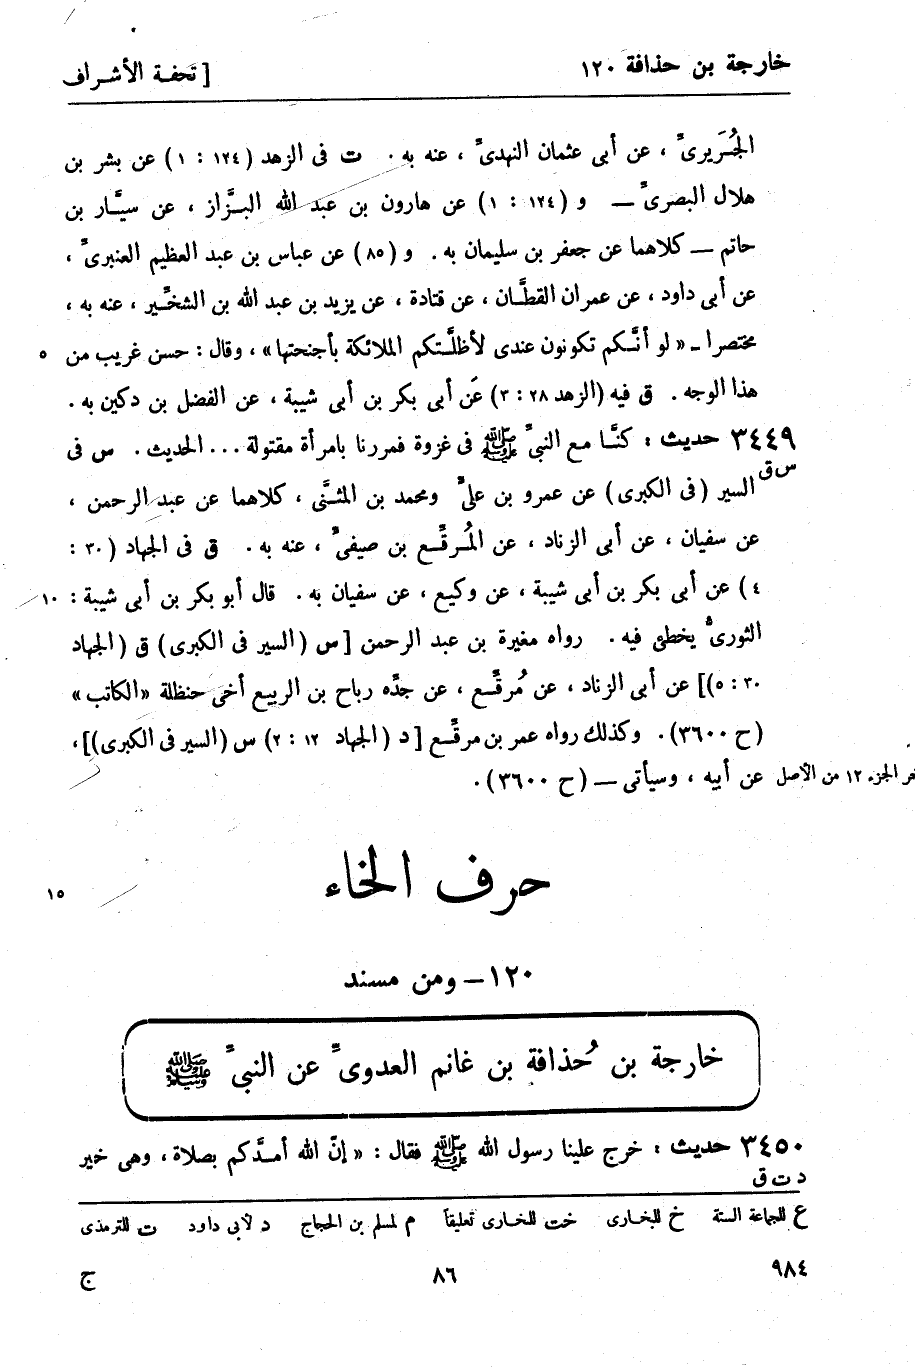 خارجة بن حذافة ١٢٠
[ تحفة الأشراف
الجُرَيرىّ ، عن أبى عثمان النهدىّ ، عنه به . ت فى الزهد ( ١٢٤ : ١ ) عن بشر بن
هلال البصرىّ — و ( ١٢٤ : ١ ) عن هارون بن عبد الله البزَّاز ، عن سيَّار بن
حاتم — كلاهما عن جعفر بن سليمان به . و ( ٨٥ ) عن عباس بن عبد العظيم العنبرىّ ،
عن أبى داود ، عن عمران القطَّان ، عن قتادة ، عن يزيد بن عبد الله بن الشخِّير ، عنه به ،
مختصرا ـ « لو أنَّكم تكونون عندى لأظلَّتكم الملائكة بأجنحتها » ، وقال : حسن غريب من ٥
هذا الوجه . ق فيه (الزهد ٢٨ : ٣) عَن أبى بكر بن أبى شيبة ، عن الفضل بن دكين به .
٣٤٤٩ حديث : كنَّا مع النبىّ ﷺ فى غزوة فمررنا بامرأة مقتولة ... الحديث . س فى
س ق
السير (فى الكبرى) عن عمرو بن علىّ ومحمد بن المثنَّى ، كلاهما عن عبد الرحمن ،
عن سفيان ، عن أبى الزناد ، عن المُرقِّع بن صيفىّ ، عنه به . ق فى الجهاد ( ٣٠ :
٤ ) عن أبى بكر بن أبى شيبة ، عن وكيع ، عن سفيان به . قال أبو بكر بن أبى شيبة : ١٠
الثورىّ يخطئ فيه . رواه مغيرة بن عبد الرحمن [ س (السير فى الكبرى) ق (الجهاد
٣٠ : ٥)] عن أبى الزناد ، عن مُرقِّع ، عن جدِّه رباح بن الربيع أخى حنظلة «الكاتب»
(ح ٣٦٠٠) . وكذلك رواه عمر بن مرقِّع [ د (الجهاد ١٢ : ٢) س (السير فى الكبرى)] ،
عن أبيه ، وسيأتى — (ح ٣٦٠٠) .
خر الجزء ١٢ من الأصل
حرف الخاء
١٥
١٢٠ — ومن مسند
خارجة بن حُذافة بن غانم العدوىّ عن النبىّ ﷺ
٣٤٥٠ حديث : خرج علينا رسول الله ﷺ فقال : « إنّ الله أمدَّكم بصلاة ، وهى خير
د ت ق
ع للجماعة الستة خ للبخارى خت للخارى تعليقاً م لمسلم بن الحجاج د لأبى داود ت للترمذى
٩٨٤
٨٦
ج